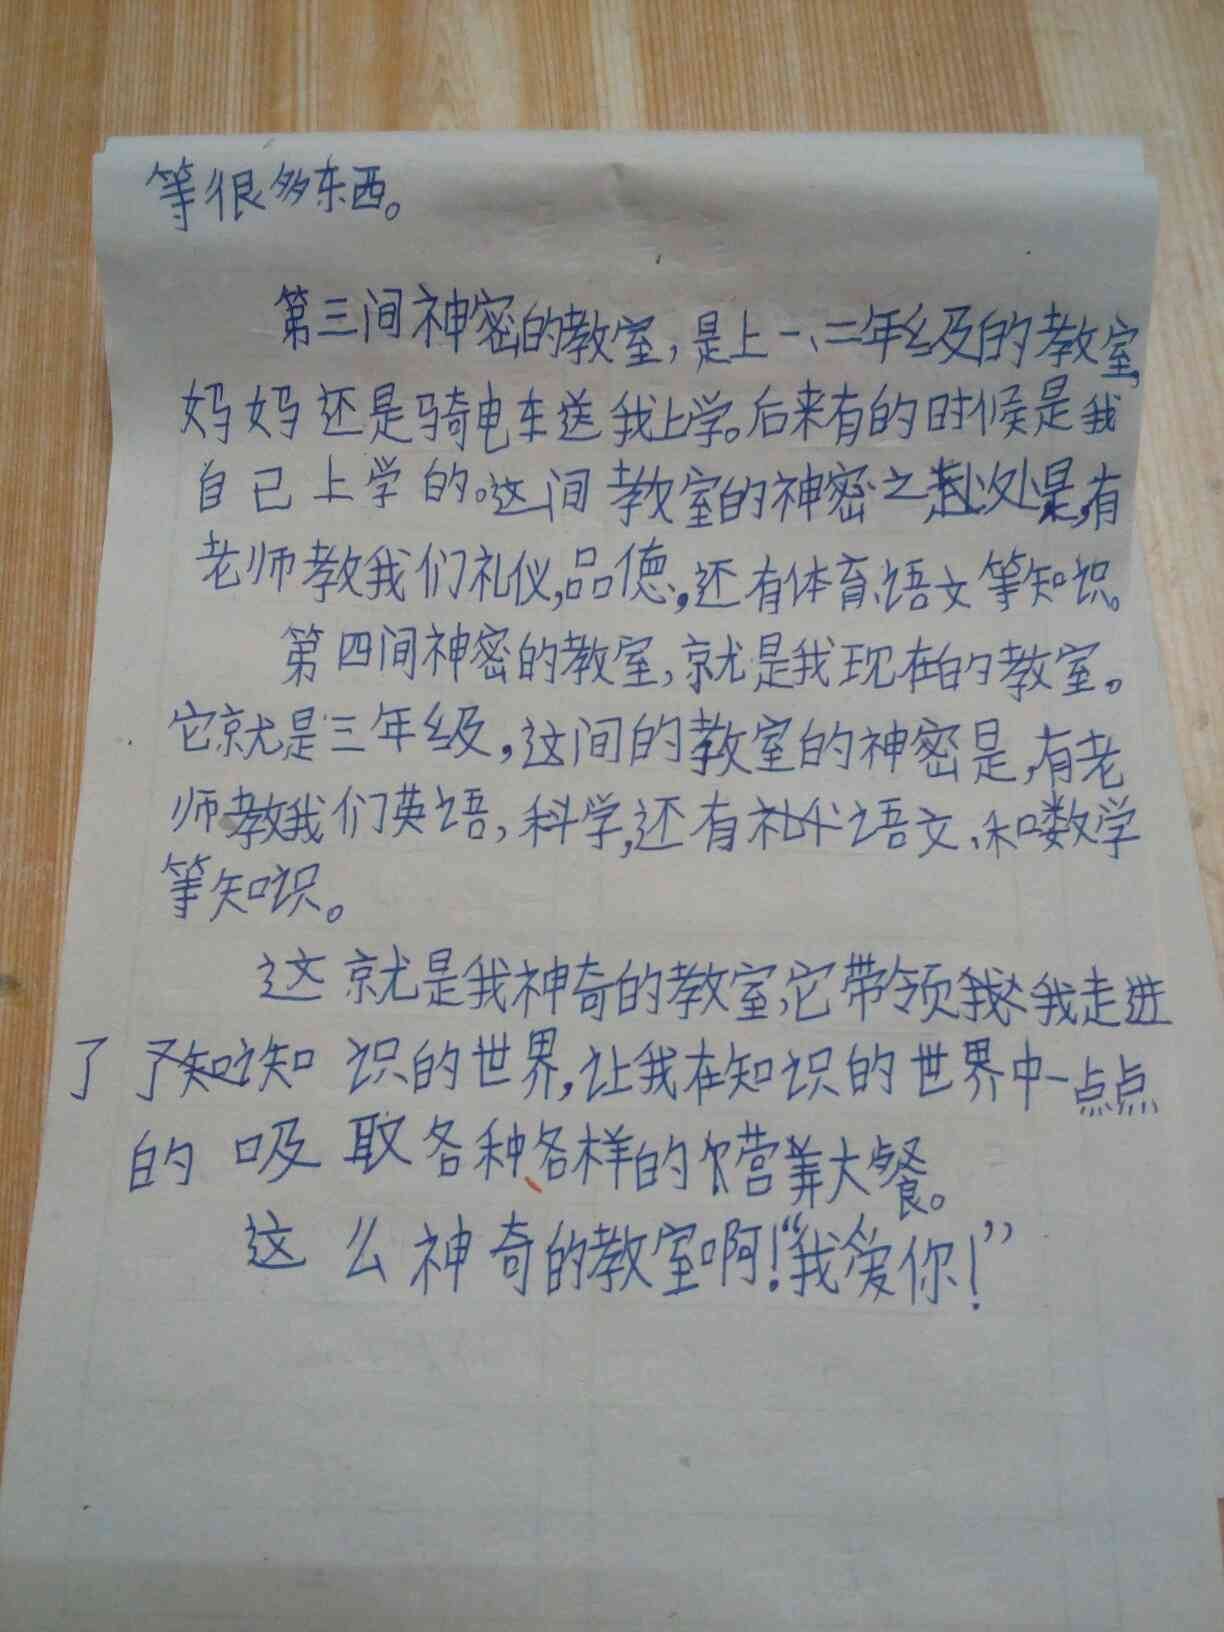 等很多东西。
第三间神密的教室,是上一、二年级的教室,
妈妈还是骑电车送我上学。后来有的时候是我
自己上学的。这间教室的神密之处是,有
老师教我们礼仪,品德,还有体育、语文等知识。
第四间神密的教室,就是我现在的教室。
它就是三年级,这间的教室的神密是,有老
师教我们英语,科学,还有语文、和数学
等知识。
这就是我神奇的教室,它带领我走进
了知识的世界,让我在知识的世界中一点点
的吸取各种各样的营养大餐。
这么神奇的教室啊!“我爱你!”